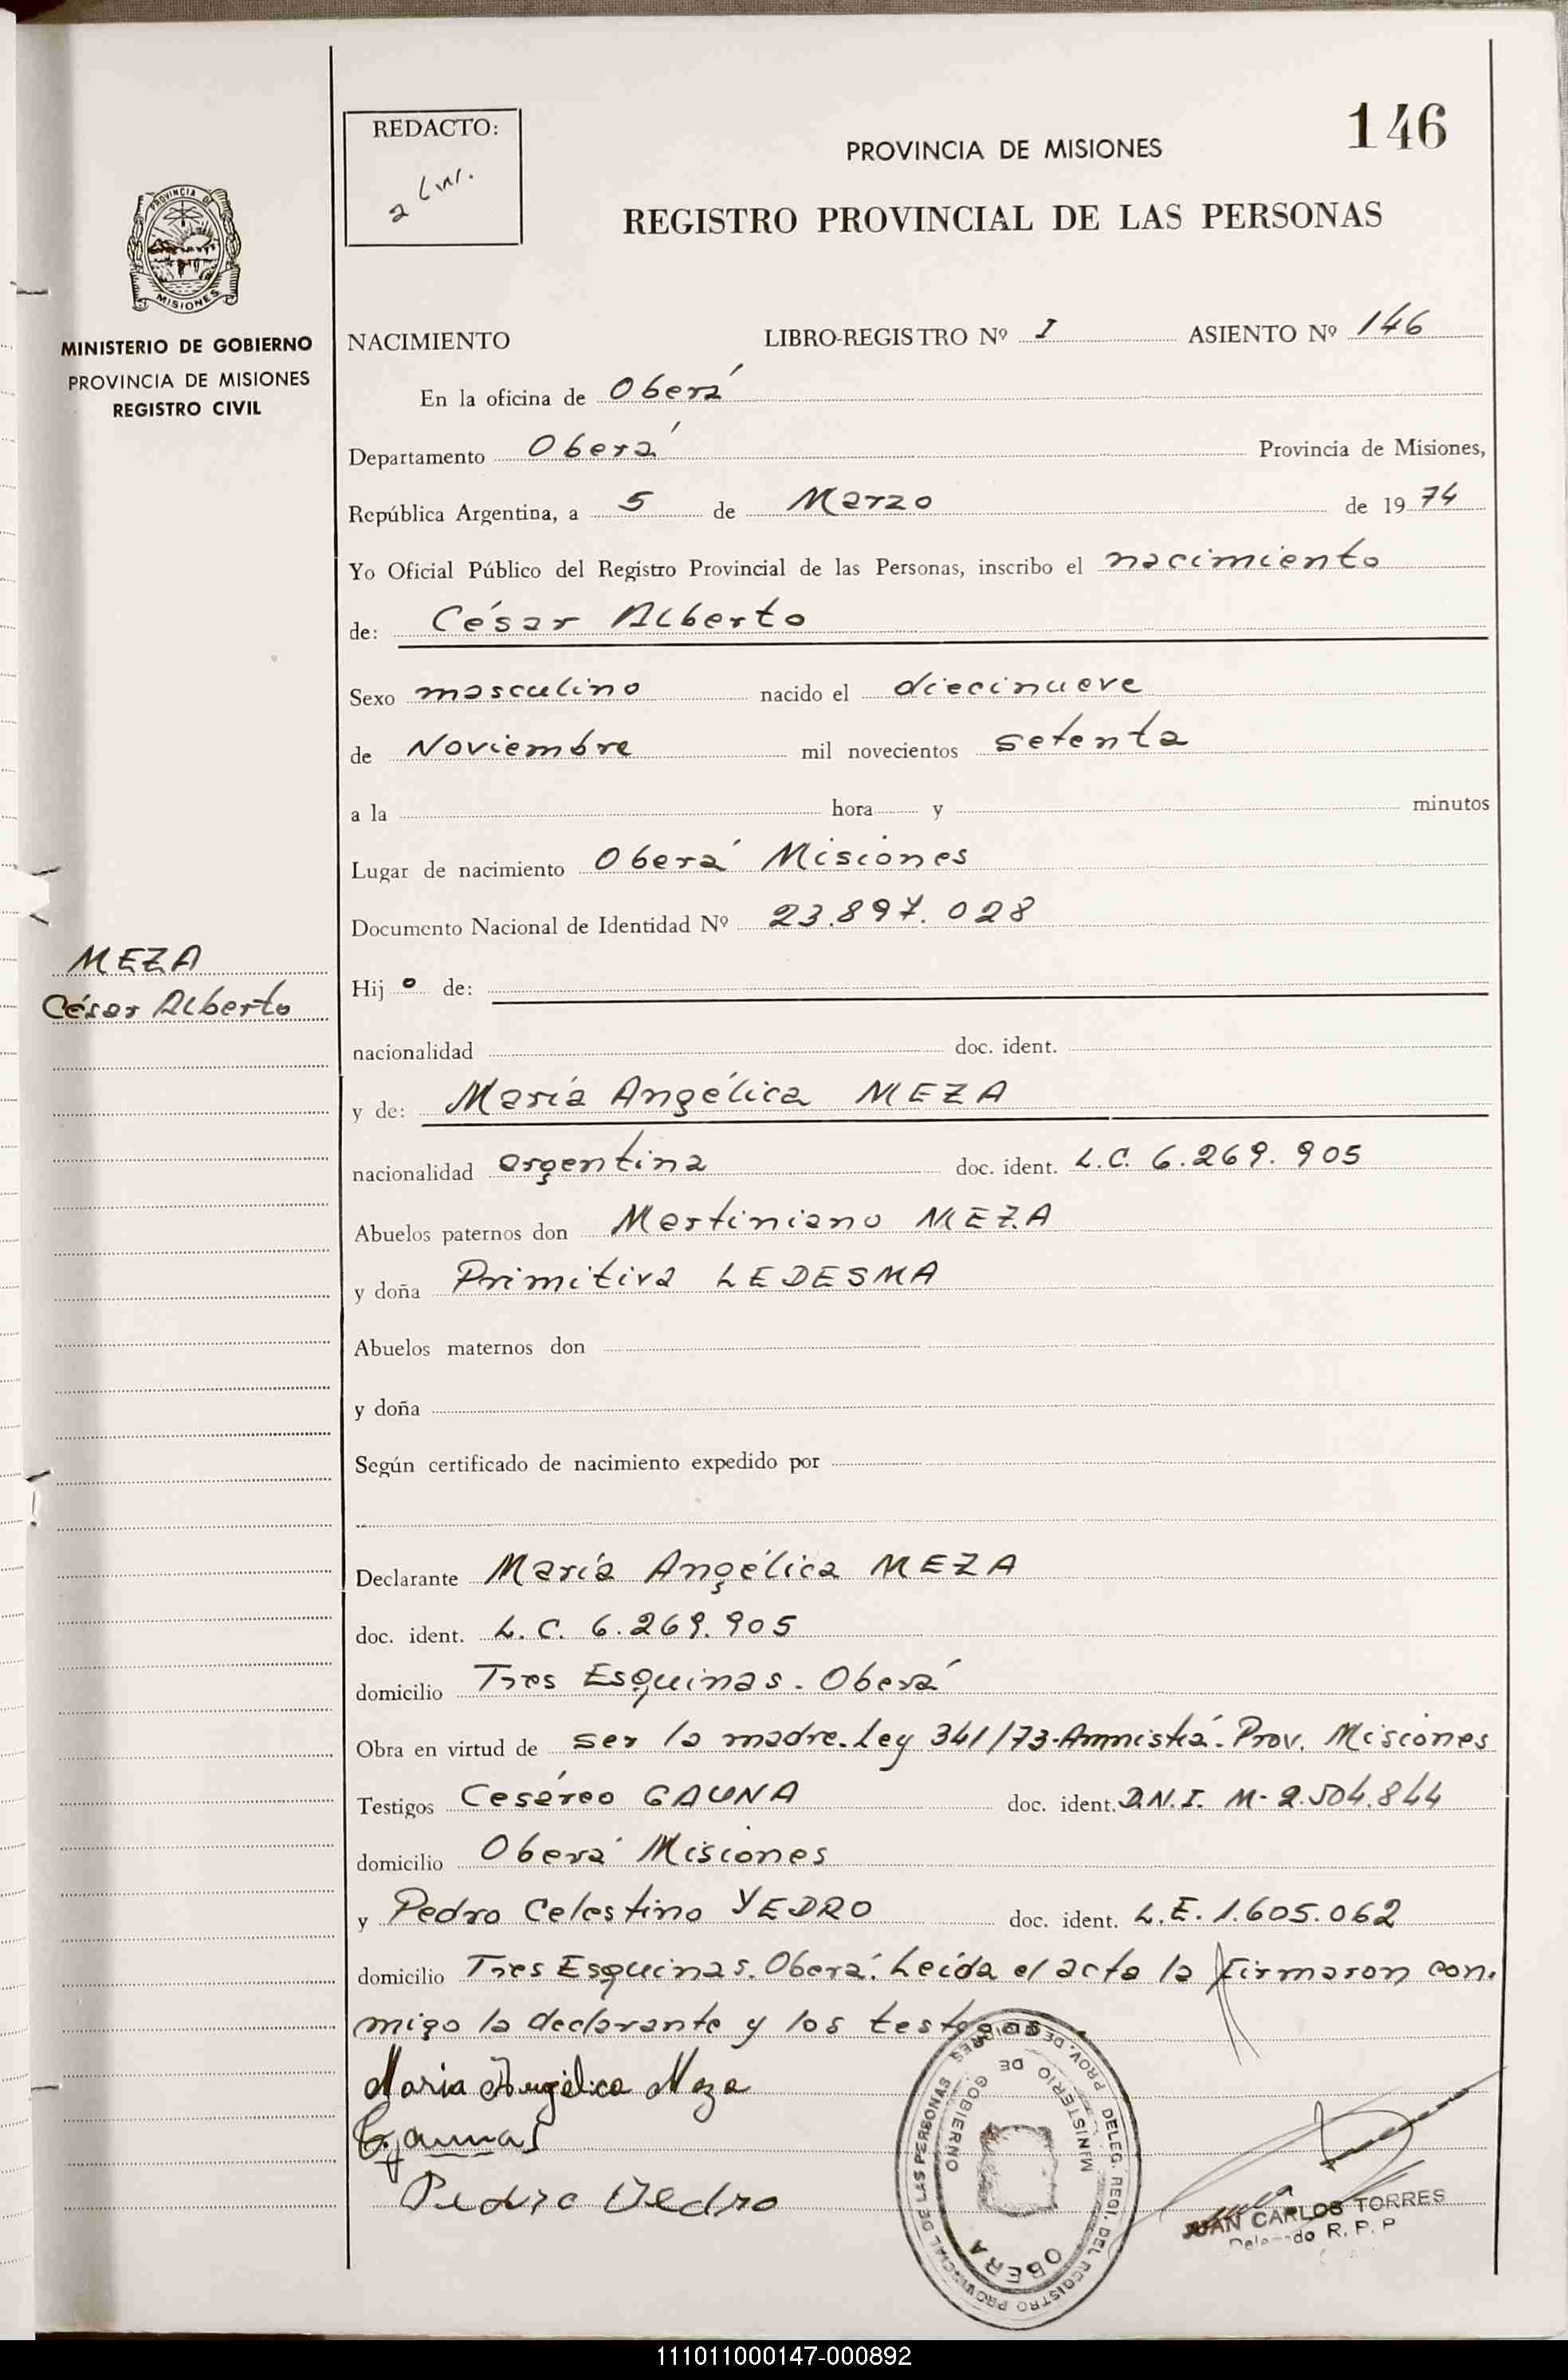 146
REDACTO:
PROVINCIA DE MISIONES
REGISTRO PROVINCIAL DE LAS PERSONAS
PROVINCIA DE
MISIONES
MINISTERIO DE GOBIERNO
PROVINCIA DE MISIONES
REGISTRO CIVIL
NACIMIENTO LIBRO-REGISTRO Nº I ASIENTO Nº 146
En la oficina de Oberá
Departamento Oberá Provincia de Misiones,
República Argentina, a 5 de Marzo de 1974
Yo Oficial Público del Registro Provincial de las Personas, inscribo el nacimiento
de: César Alberto
Sexo masculino nacido el diecinueve
de Noviembre mil novecientos setenta
a la hora y minutos
Lugar de nacimiento Oberá Misiones
Documento Nacional de Identidad Nº 23.897.028
MEZA
César Alberto
Hijo de:
nacionalidad doc. ident.
y de: María Angélica MEZA
nacionalidad argentina doc. ident. L.C. 6.269.905
Abuelos paternos don Martiniano MEZA
y doña Primitiva LEDESMA
Abuelos maternos don
y doña
Según certificado de nacimiento expedido por
Declarante María Angélica MEZA
doc. ident. L.C. 6.269.905
domicilio Tres Esquinas. Oberá
Obra en virtud de ser la madre. Ley 341/73-Amnistía. Prov. Misiones
Testigos Cesáreo GAUNA doc. ident. D.N.I. M-2.504.844
domicilio Oberá Misiones
y Pedro Celestino YEDRO doc. ident. L.E. 1.605.062
domicilio Tres Esquinas. Oberá. Leída el acta la firmaron con.
migo la declarante y los testigos.
Maria Angélica Meza
Pedro Yedro
DELEG. REGI. DEL REGISTRO PROVINCIAL DE LAS PERSONAS
PROV. DE MISIONES
MINISTERIO DE GOBIERNO
OBERA
JUAN CARLOS TORRES
Delegado R. P. P
111011000147-000892